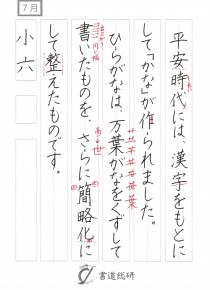 7月
平安時代には、漢字をもとに
して「かな」が作られました。
ひらがなは、万葉がなをくずして
書いたものを、さらに簡略化に
して整えたものです。
小六
書道総研